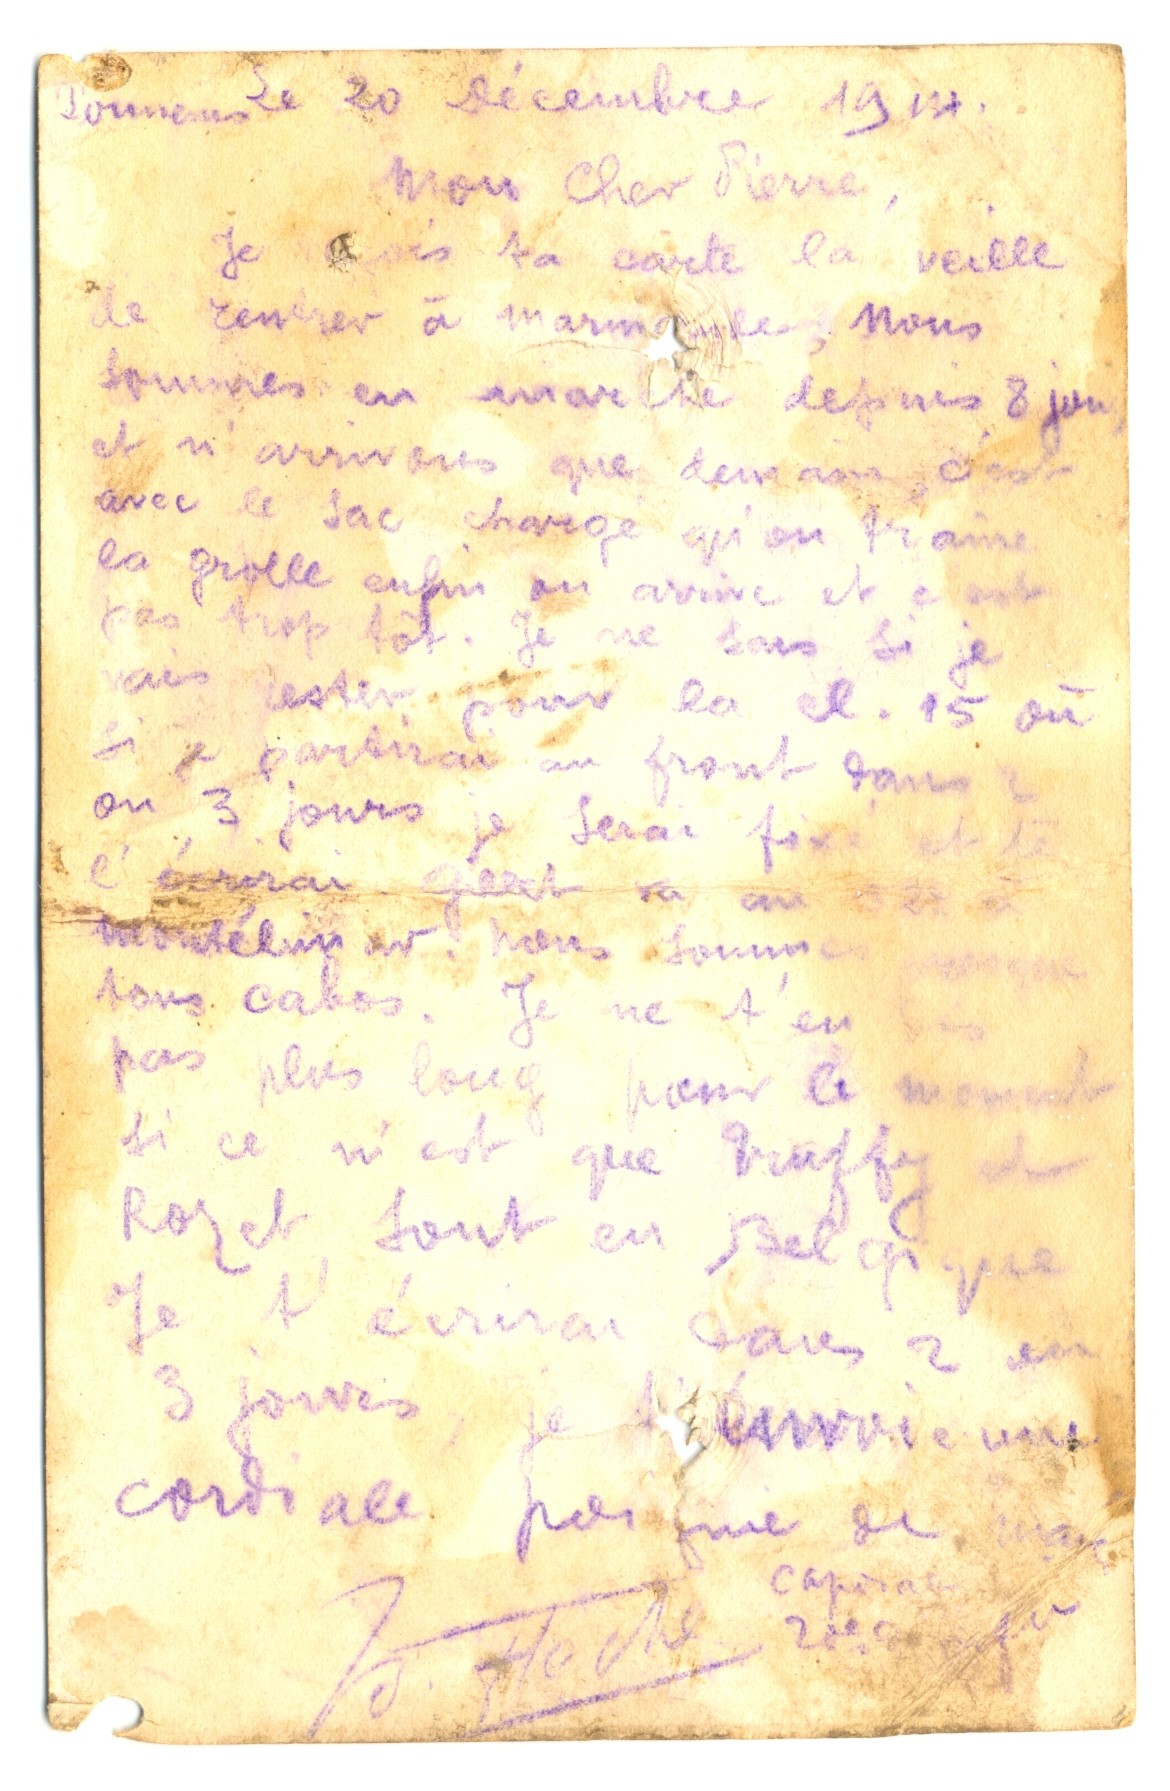 Tonneins Le 20 Décembre 1914.
Mon Cher Pierre,
Je reçois ta carte la veille
de rentrer à Marmande, Nous
sommes en marche depuis 8 jou
et n'arrivons que demain, c'est
avec le sac chargé qu'on traine
la grolle enfin on arrive et c'est
pas trop tôt. Je ne sais si je
vais rester pour la cl. 15 où
si je partirai au front dans 2
ou 3 jours je serai fixé et te
l'écrirai. va au à
Montélimar. Nous sommes
tous cabos. Je ne t'en dis
pas plus long pour le moment
si ce n'est que Truffy et
Rozet sont en Belgique
Je t'écrirai dans 2 ou
3 jours, je t'envoie une
cordiale poignée de main
caporal
J. Hoche